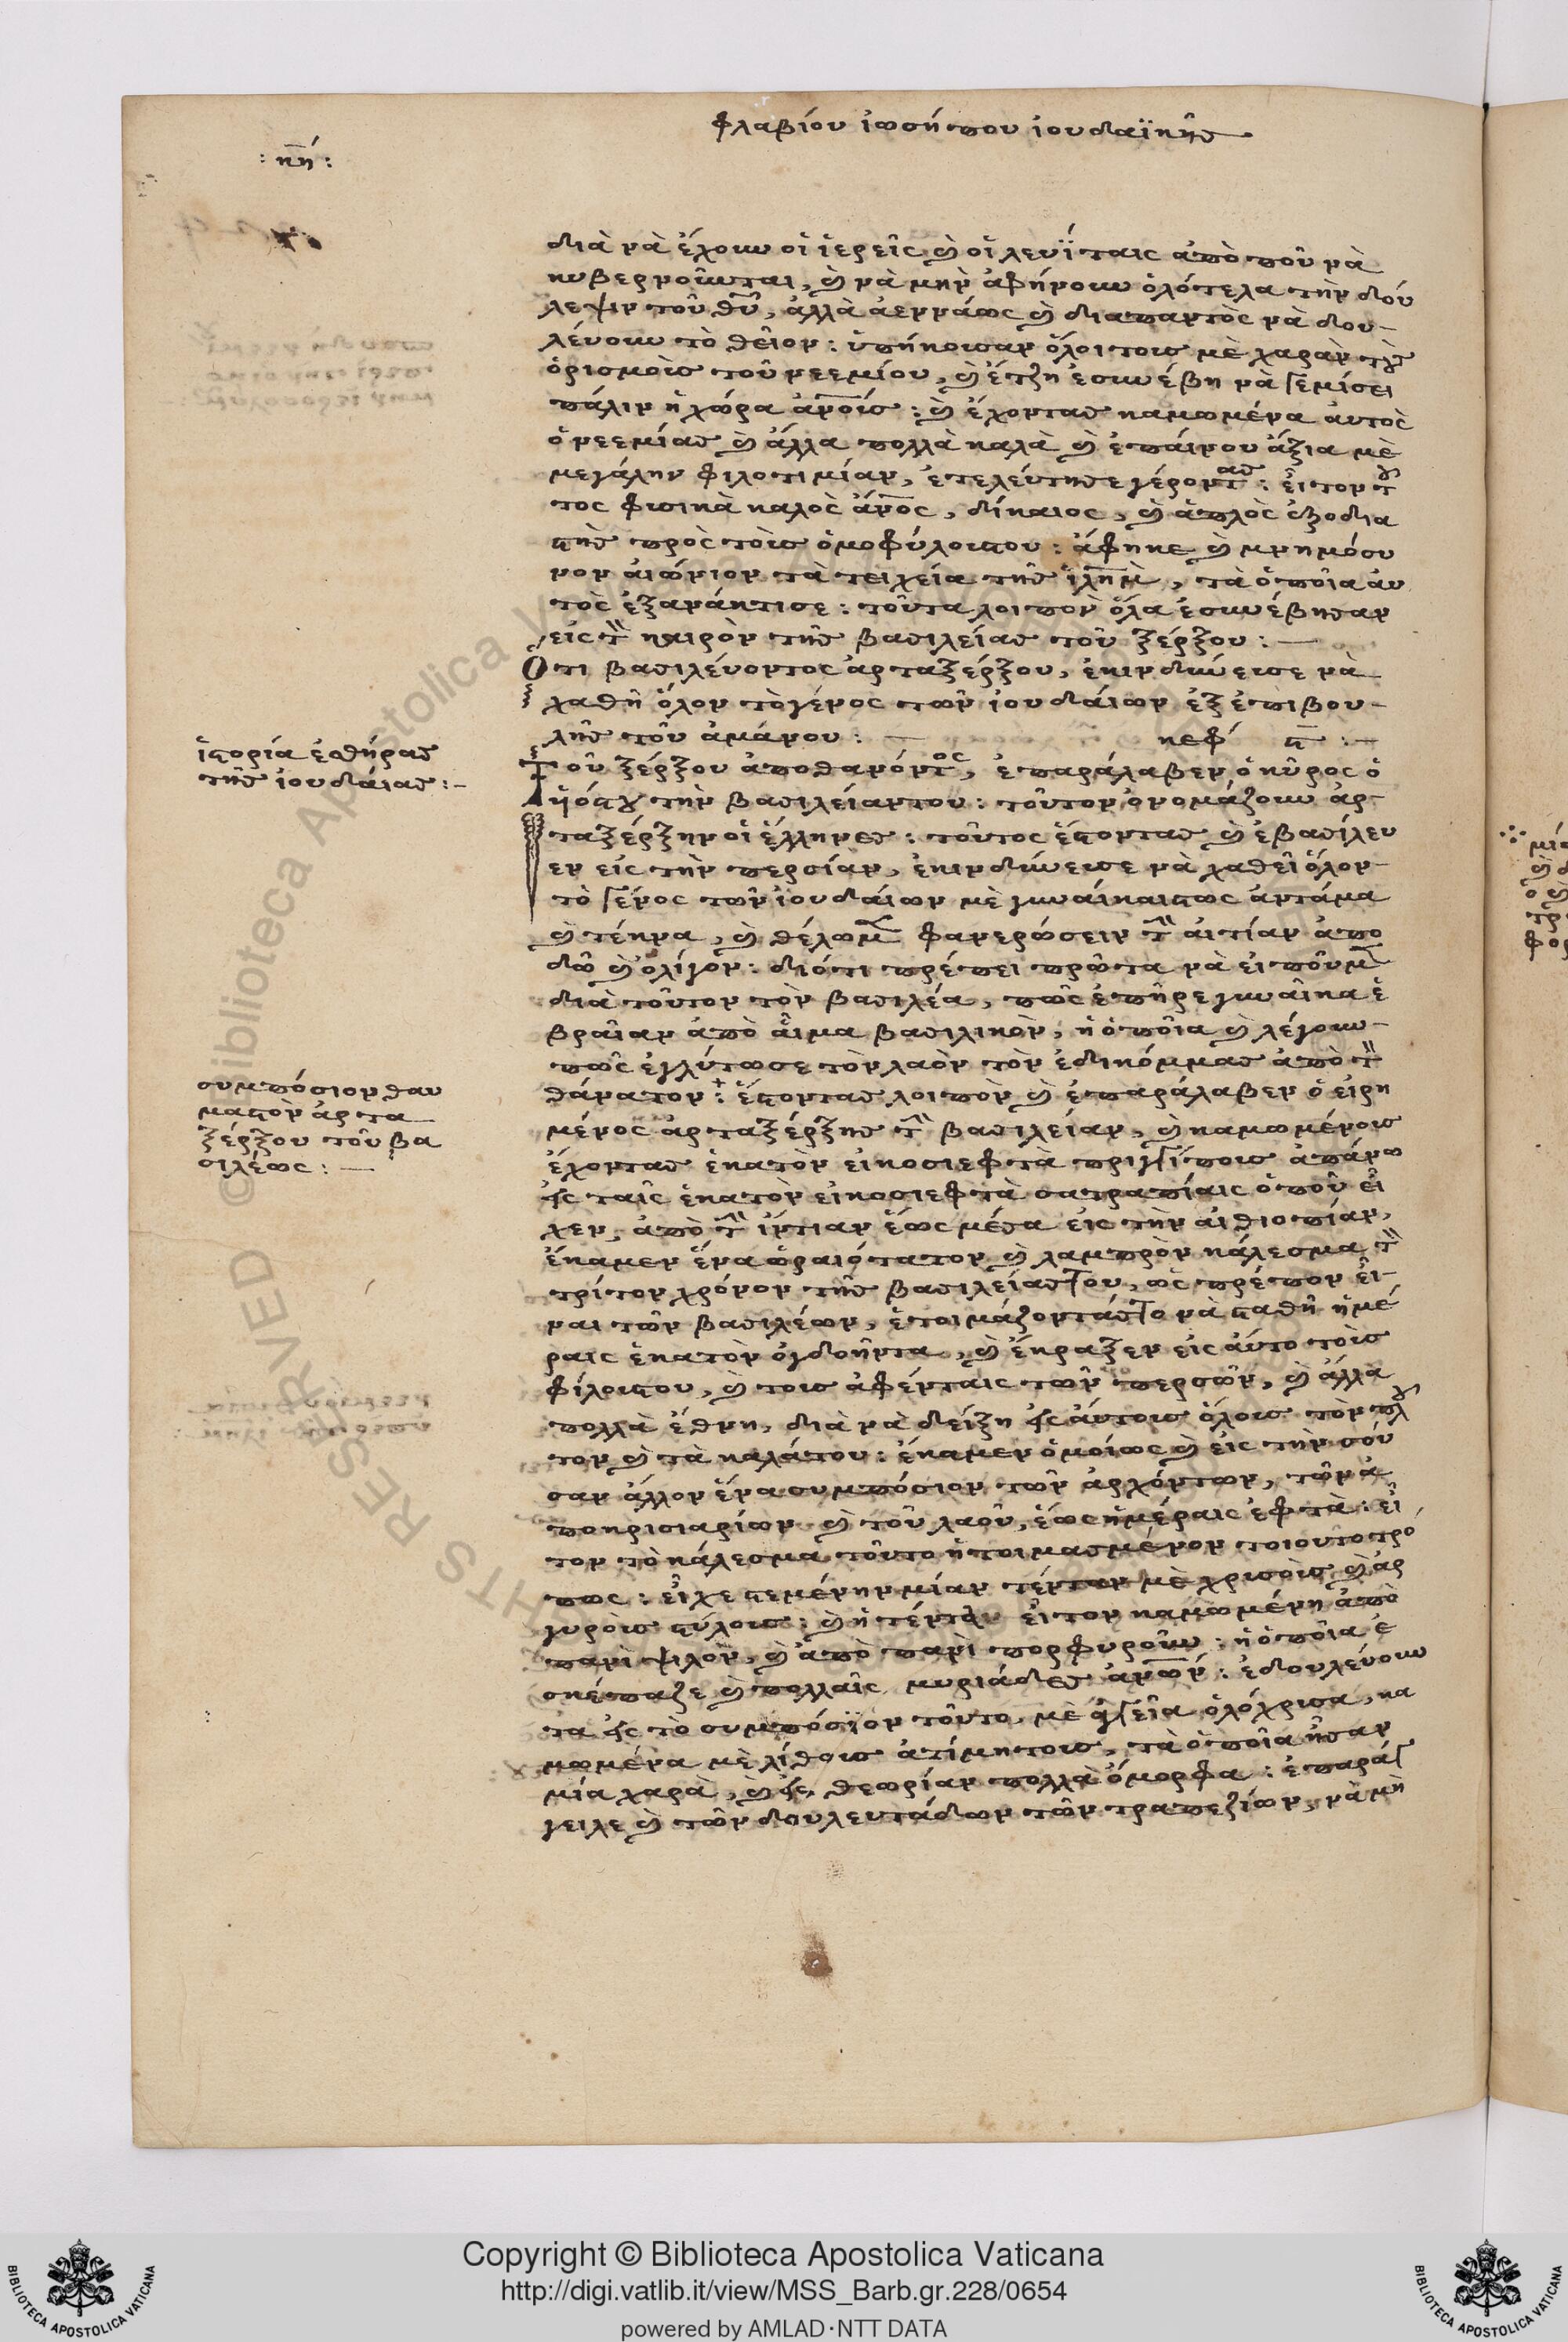 φλαβίου ἰωσήπου ἰουδαϊκῆς
: κη :
διὰ νὰ ἔχουν οἱ ἱερεῖς καὶ οἱ λευΐταις ἀπὸ ποῦ νὰ
κυβερνοῦνται, καὶ νὰ μὴν ἀφήνουν ὁλότελα τὴν δού
λεψιν τοῦ θυ, ἀλλὰ ἀεννάως καὶ διαπαντὸς νὰ δου-
λεύουν τὸ θεῖον: ὑπήκουσαν ὅλοι τους μὲ χαρὰν τοὺς
ὁρισμοὺς τοῦ νεεμίου, καὶ ἔτζη ἐσυνέβη νὰ γεμίσει
πάλιν ἡ χώρα ανους: καὶ ἔχοντας καμωμένα αὐτὸς
ὁ νεεμίας καὶ ἄλλα πολλὰ καλὰ καὶ ἐπαίνου ἄξια μὲ
μεγάλην φιλοτιμίαν, ἐτελεύτησε γέροντας: εἶτον τοῦ
τος φυσικὰ καλὸς ανος, δίκαιος, καὶ ἁπλὸς ἐξοδια
στὴς πρὸς τοὺς ὁμοφύλους του: ἄφηκε καὶ μνημόσυ
νον αἰώνιον τὰ τειχεία τῆς ιλημ, τὰ ὁποῖα αὐ
τὸς ἐξανάκτισε: τοῦτα λοιπὸν ὅλα ἐσυνέβησαν
εἰς τὸν καιρὸν τῆς βασιλείας τοῦ ξέρξου: —
Οτι βασιλεύοντος ἀρταξέρξου, ἐκινδύνευσε νὰ
χαθῆ ὅλον τὸ γένος τῶν ἰουδαίων ἐξ ἐπιβου-
λῆς τοῦ ἀμάνου: — κεφ ϛ: —
ἱστορία ἐσθήρας
τῆς ἰουδαίας: —
Τοῦ ξέρξου ἀποθανόντος, ἐπαράλαβεν ὁ κῦρος ὁ
ἡόστου τὴν βασιλείαν του: τοῦτον ὀνομάζουν ἀρ-
ταξέρξην οἱ ἕλληνες: τοῦτος ἔστοντας καὶ ἐβασίλευ
εν εἰς τὴν περσίαν, ἐκινδύνευσε νὰ χαθεῖ ὅλον
τὸ γένος τῶν ἰουδαίων μὲ γυναίκαις τως ἀντάμα
καὶ τέκνα, καὶ θέλωμεν φανερώσειν τὴν αἰτίαν ἀπο
δῶ καὶ ὀλίγον: διότι πρέπει πρῶτα νὰ εἰποῦμεν
διὰ τοῦτον τὸν βασιλέα, πῶς ἐπῆρε γυναῖκα ἑ
βραῖαν ἀπὸ αἷμα βασιλικὸν, ἡ ὁποῖα καὶ λέγουν
πῶς ἐγλύτωσε τὸν λαὸν τὸν ἐδικόμμας ἀπὸ τὸν
συμπόσιον θαυ
μαστὸν ἀρτα
ξέρξου τοῦ βα
σιλέως: —
θάνατον: ἔστοντας λοιπὸν καὶ ἐπαράλαβεν ὁ εἰρη
μένος ἀρταξέρξης τὴν βασιλείαν, καὶ καμωμένους
ἔχοντας ἑκατὸν εἰκοσιεφτὰ πριγγίπους ἀπάνω
εἰς ταῖς ἑκατὸν εἰκοσιεφτὰ σατραπίαις ὁποῦ εἶ
χεν, ἀπὸ τὴν ἰντίαν ἕως μέσα εἰς τὴν αἰθιοπίαν,
ἔκαμεν ἕνα ὡραιότατον καὶ λαμπρὸν κάλεσμα τὸν
τρίτον χρόνον τῆς βασιλείας του, ὡς πρέπον εἶ-
ναι τῶν βασιλέων, ἑτοιμάζοντάς το νὰ σταθῆ ἡμέ
ραις ἑκατὸν ὀγδοῆντα, καὶ ἔκραξεν εἰς αὐτο τοὺς
φίλους του, καὶ τους ἀφένταις τῶν περσῶν, καὶ ἄλλα
πολλὰ ἔθνη, διὰ νὰ δείξη εἰς αὐτους ὅλους τὸν πλοῦ
τον καὶ τὰ καλά του: ἔκαμεν ὁμοίως καὶ εἰς τὴν σού
σαν ἄλλον ἕνα συμπόσιον τῶν ἀρχόντων, τῶν ἀ
ποκρισιαρίων καὶ τοῦ λαοῦ, ἕως ἡμέραις ἐφτὰ: εἶ
τον τὸ κάλεσμα τοῦτο ἡτοιμασμένον τοιουτοτρό
πως: εἶχε στεμένην μίαν τένταν μὲ χρυσοὺς καὶ ἀρ
γυροὺς στύλους: καὶ ἡ τέντα εἶτον καμωμένη ἀπὸ
πανὶ ψιλὸν, καὶ ἀπὸ πανὶ πορφυροῦν: ἡ ὁποῖα ἐ
σκέπαζε καὶ πολλαῖς μυριάδες ανων: ἐδουλεύουν
τα εἰς τὸ συμπόσϊον τοῦτο, μὲ ἀγγεῖα ὁλόχρυσα, κα
μωμένα μὲ λίθους ἀτίμητους, τὰ ὁποῖα ἦσαν
μία χαρὰ, καὶ εἰς θεωρίαν πολλὰ ὄμορφα: ἐπαράγ
γειλε καὶ τῶν δουλευτάδων τῶν τραπεζίων, νὰ μὴ
Copyright © Biblioteca Apostolica Vaticana
http://digi.vatlib.it/view/MSS_Barb.gr.228/0654
powered by AMLAD·NTT DATA